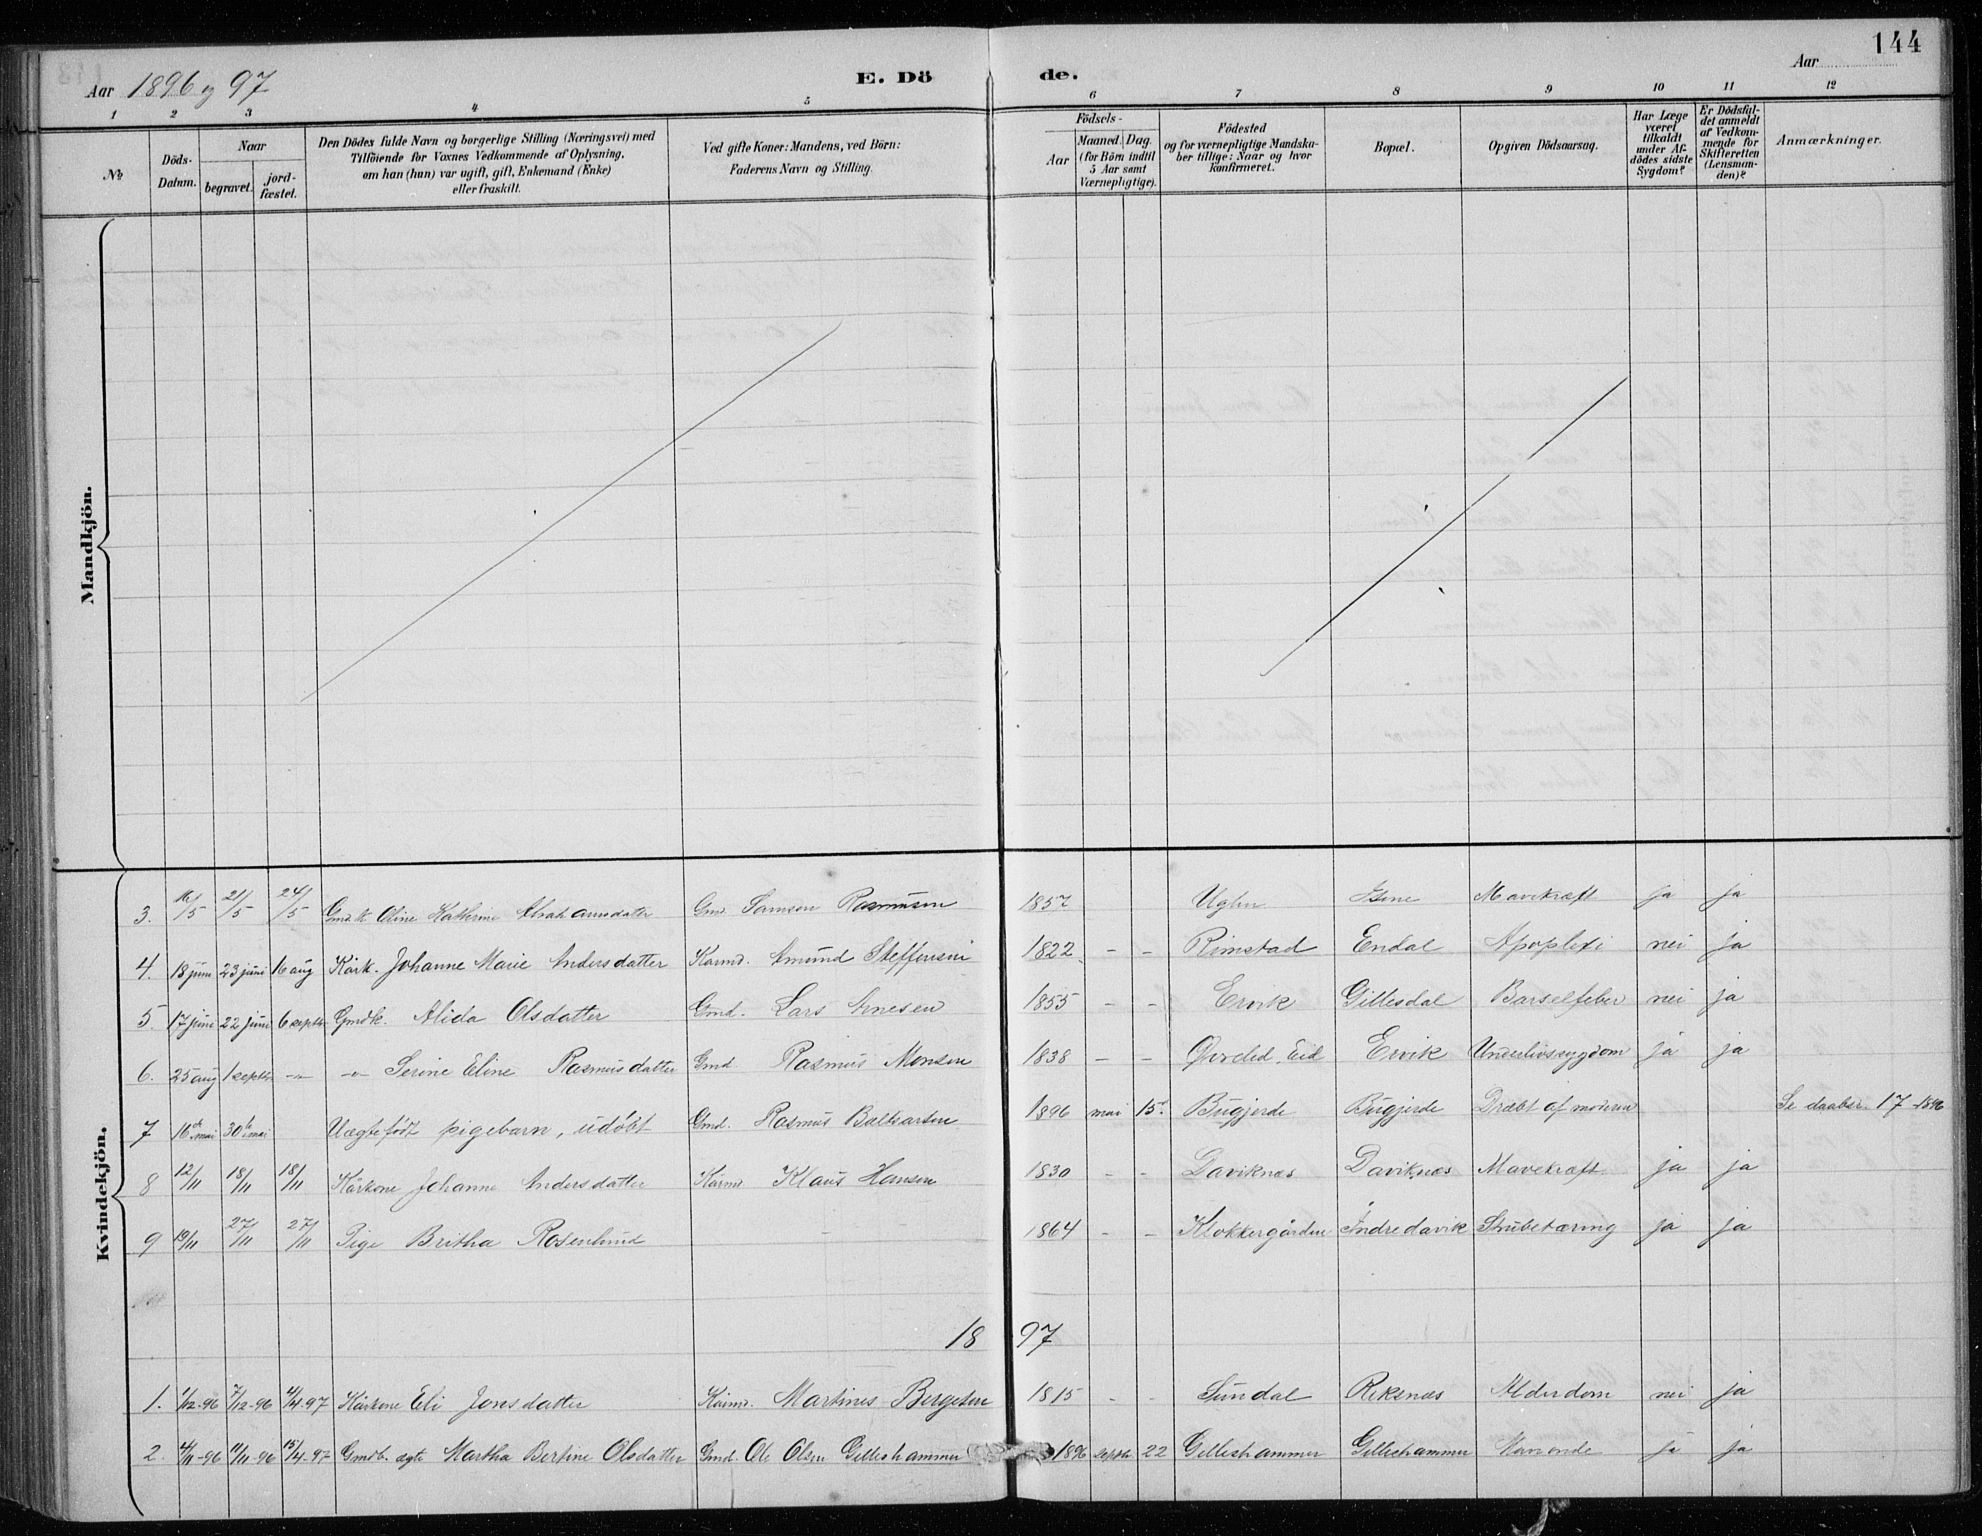 144
Aar 1896 og 97
E. Dö de.
Aar
1 2 3 4 5 6 7 8 9 10 11 12
№
Döds-Datum.
Naar
begravet. jord-fæstet.
Den Dödes fulde Navn og borgerlige Stilling (Næringsvei) med
Tilföiende for Voxnes Vedkommende af Oplysning,
om han (hun) var ugift, gift, Enkemand (Enke)
eller fraskilt.
Ved gifte Koner: Mandens, ved Börn:
Faderens Navn og Stilling.
Födsels-
Aar Maaned. Dag.
(for Börn indtil
5 Aar samt
Værnepligtige).
Födested
og for værnepligtige Mandska-
ber tillige: Naar og hvor
konfirmeret.
Bopæl.
Opgiven Dödsaarsag.
Har Læge
været
tilkaldt
under Af-
dödes sidste
Sygdom?
Er Dödsfal-
det anmeldt
af Vedkom-
mende for
Skifteretten
(Lensman-
den)?
Anmærkninger.
Mandkjön.
Kvindekjön.
3. 16/5 21/5 24/5 Gmdk Oline Kathrine Abrahamsdatter Gmd. Samson Rasmusen 1857 Uglen Isene Mavekræft ja ja
4. 18 juni 23 juni 16 aug Kårk. Johanne Marie Andersdatter Karmd. Amund Steffensen 1822 - - Rimstad Endal Apoplexi nei ja
5. 17 juni 22 juni 6 septbr Gmdk. Alida Olsdatter Gmd. Lars Arnesen 1855 - - Ervik Gillesdal Barselfeber nei ja
6. 25 aug 1 septbr -"- -"- Serine Eline Rasmusdatter Gmd Rasmus Monsen 1838 - - Øvreeid Eid Ervik Underlivssygdom ja ja
7 16de mai 30te mai Uægtefödt pigebarn, udöbt Gmd. Rasmus Baltsarsen 1896 mai 15d. Bugjerde Bugjerde Dræbt af moderen Se daabsr. 17 - 1896
8 12/11 18/11 18/11 Kårkone Johanne Andersdatter Karmd Klaus Hansen 1830 - - Daviknæs Daviknæs Mavekræft ja ja
9 19/11 27/11 27/11 Pige Britha Rosenlund - 1864 - - Klokkergården Indredavik Strubetæring ja ja
18 97
1. 1/12-96 7/12-96 4/4-97 Kårkone Eli Jonsdatter Karmd. Martinus Bergesen 1815 - - Sundal Rekenæs Alderdom nei ja
2. 4/11-96 11/11-96 15/4-97 Gmdb. ægte Martha Bertine Olsdatter Gmd. Ole Olsen Gilleshammer 1896 septbr. 22 Gilleshammer Gilleshammer ja ja